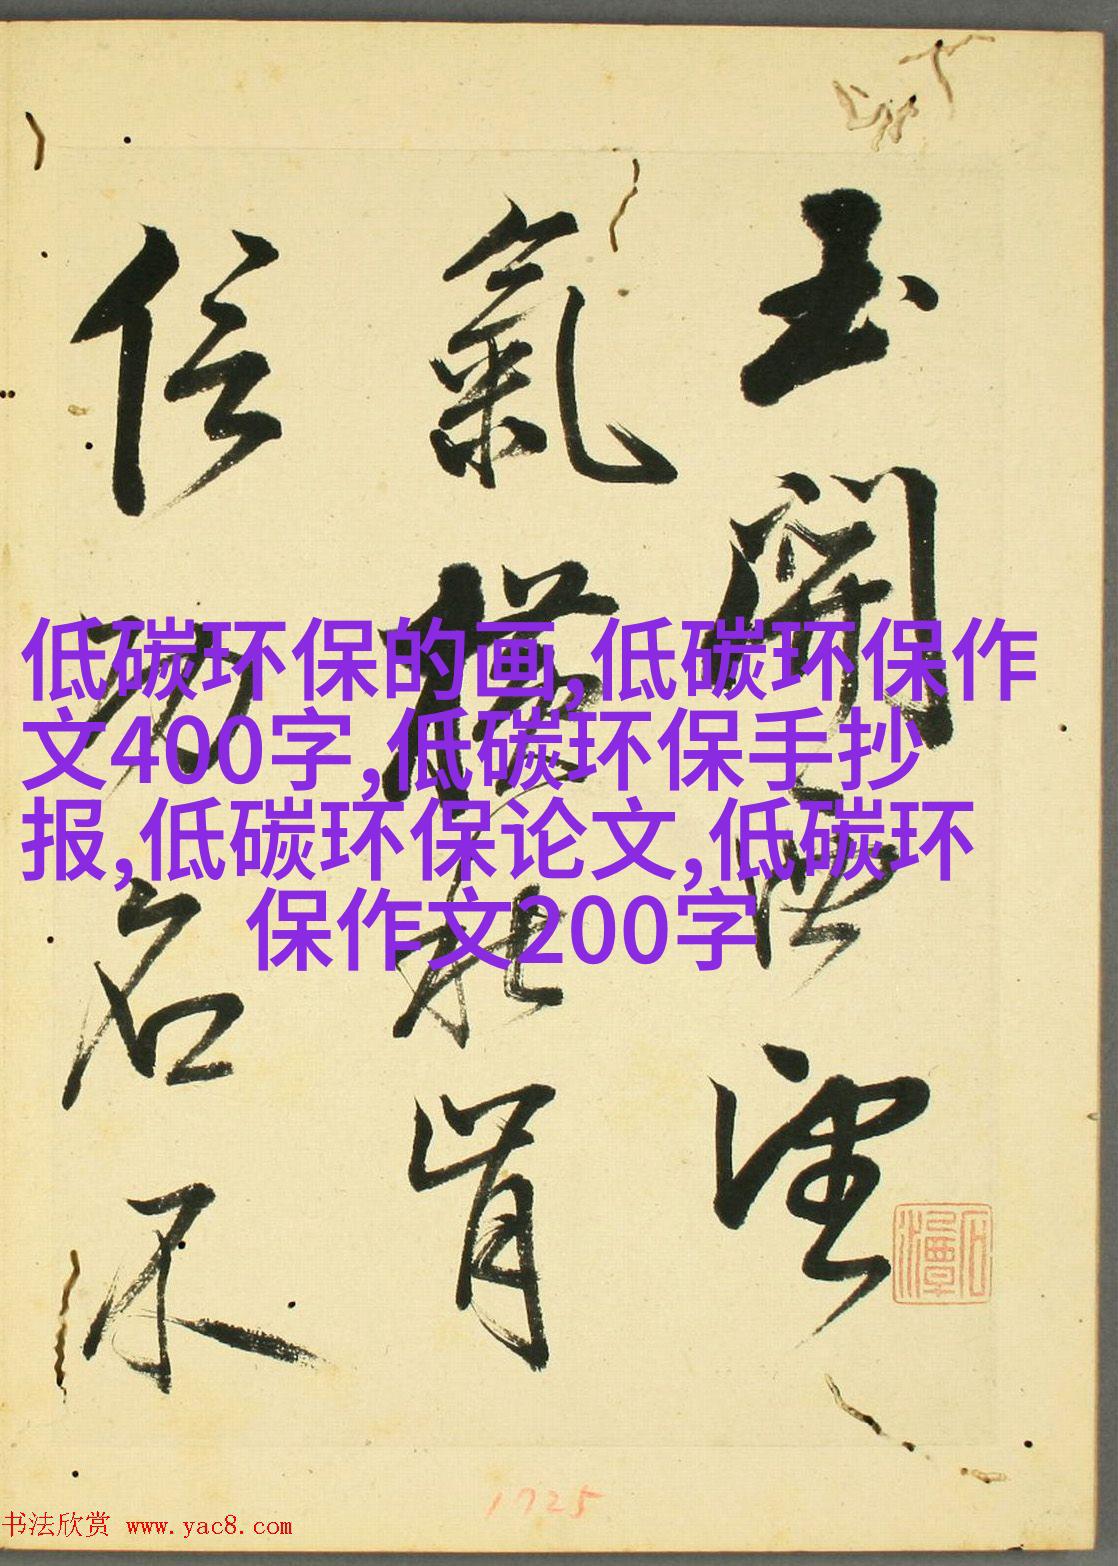 玉關西望
氣橫秋肯
信功名不
低碳环保的画,低碳环保作
文400字,低碳环保手抄
报,低碳环保论文,低碳环
保作文200字
石潭
1725
书法欣赏 www.yac8.com